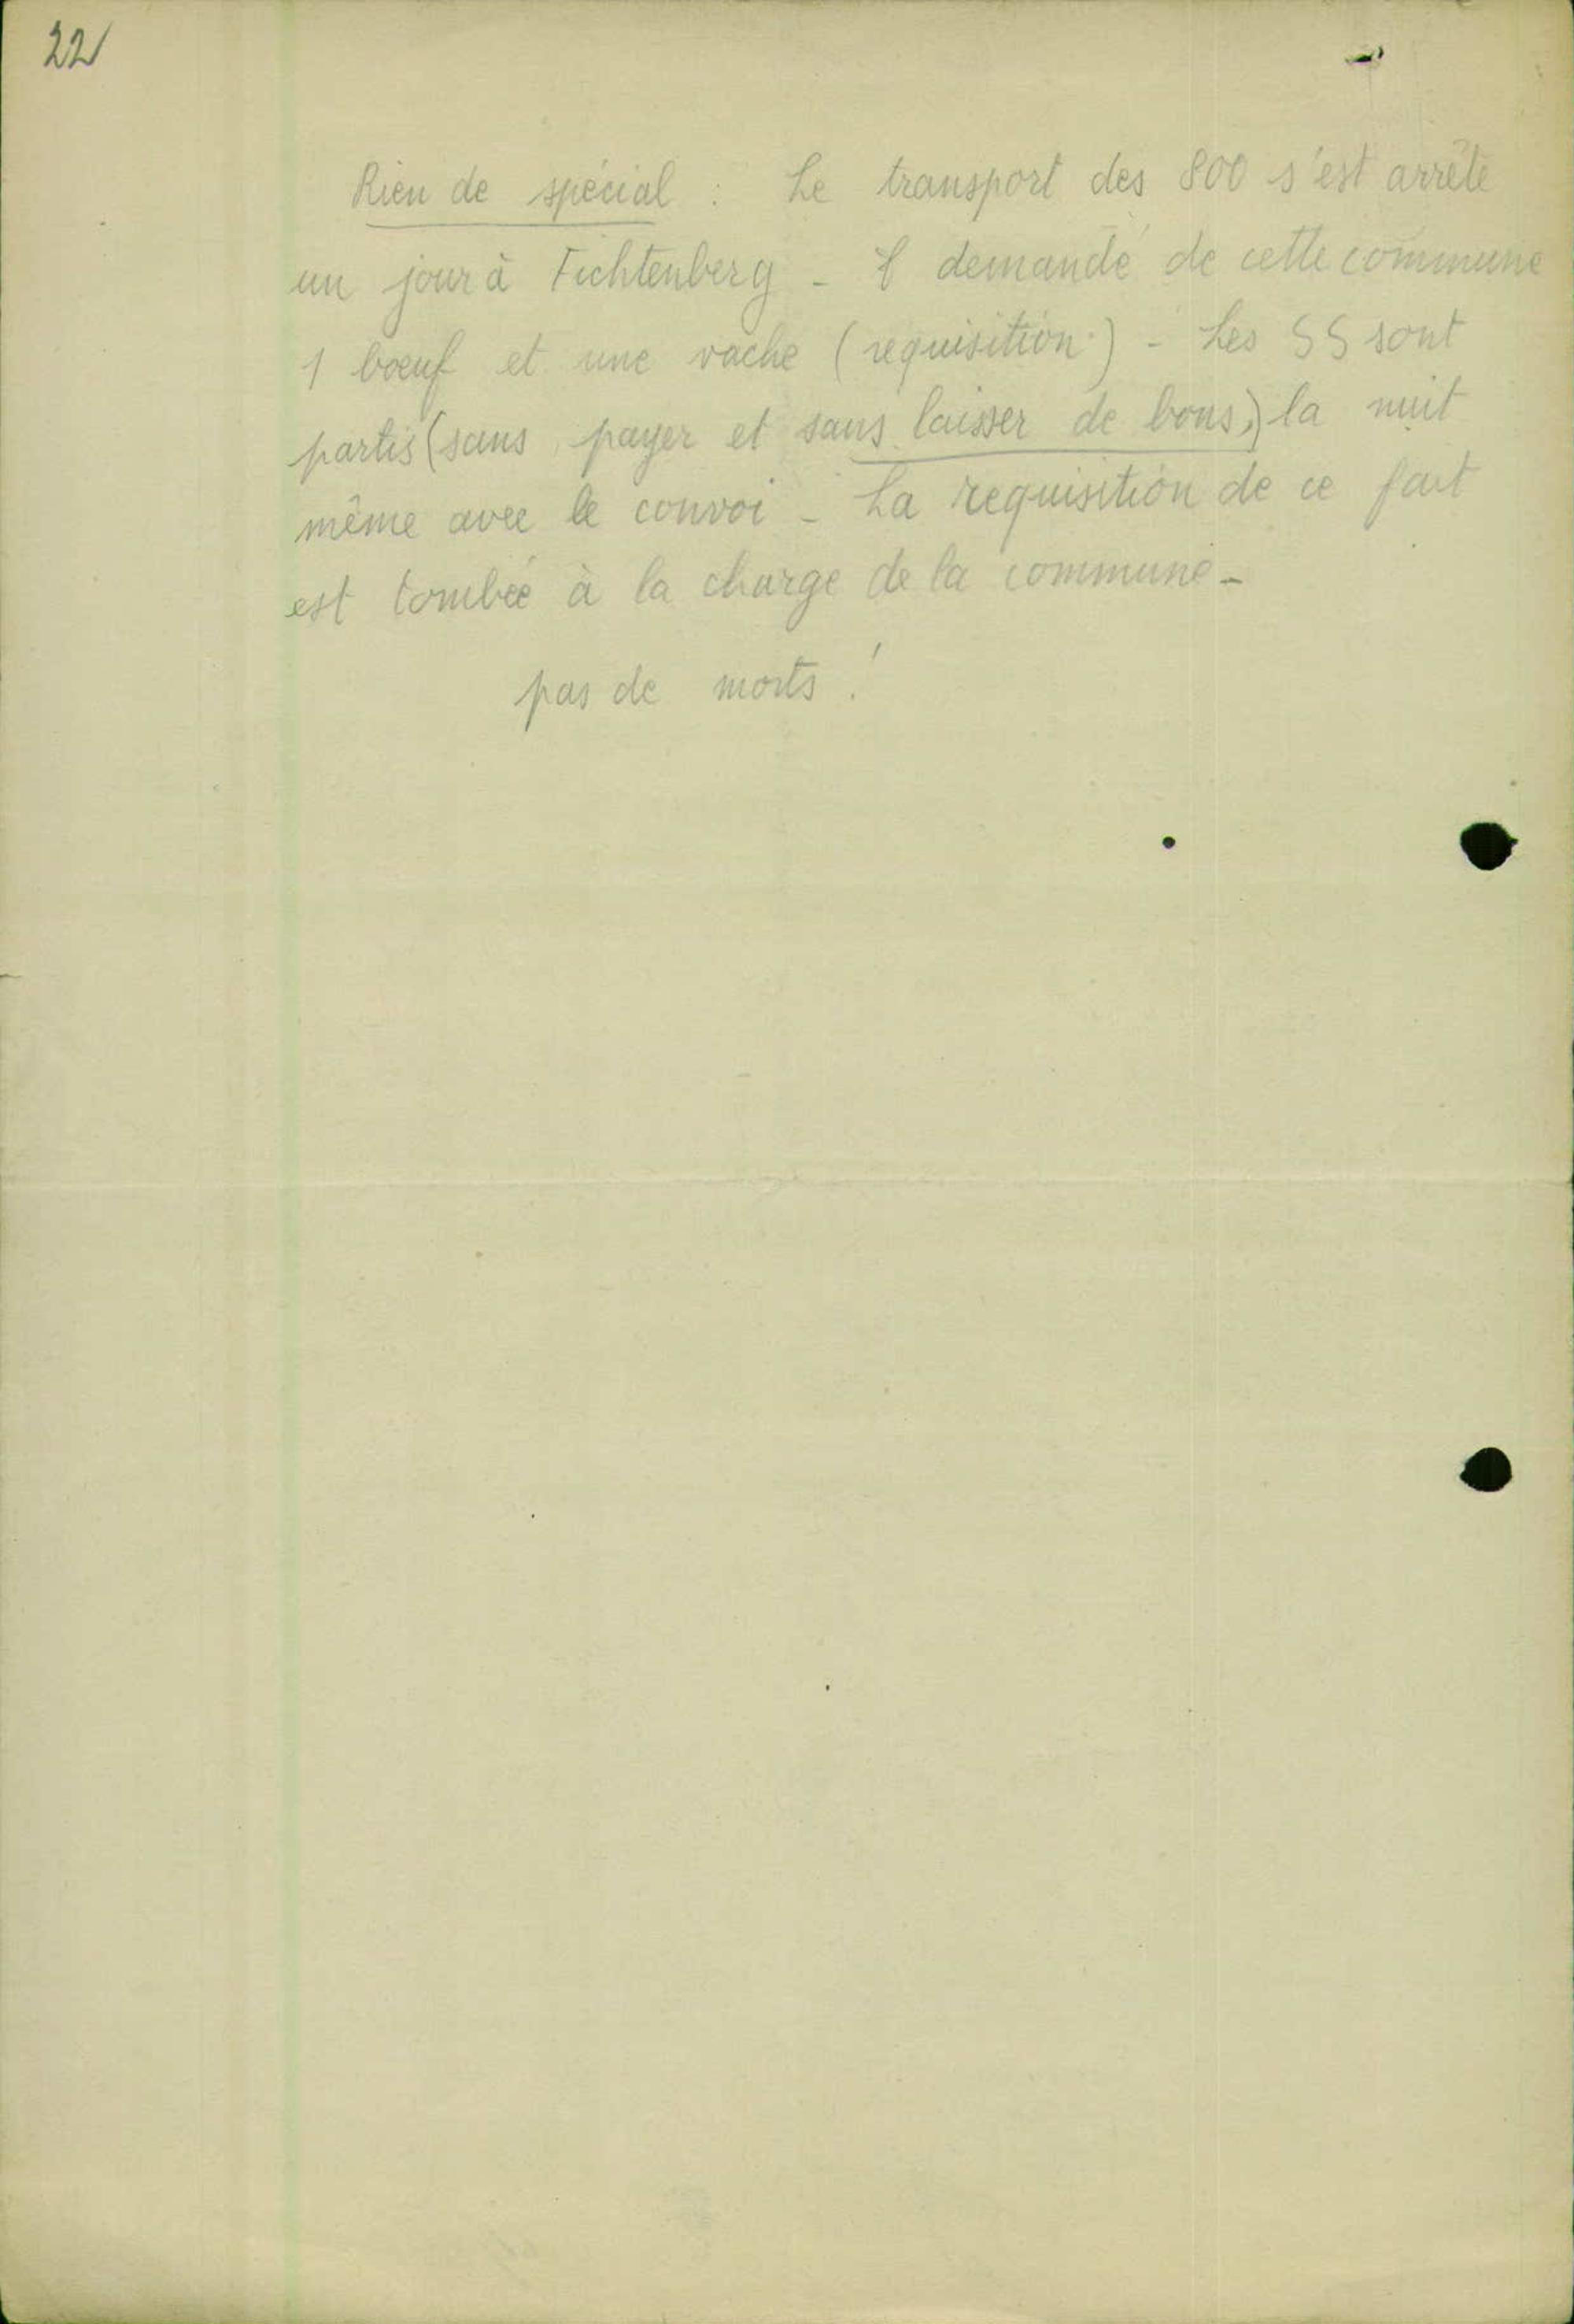 22
Rien de spécial : Le transport des 800 s'est arrêté
un jour à Fichtenberg - demandé de cette commune
1 boeuf et une vache (requisition.) - Les SS sont
partis (sans payer et sans laisser de bons,) la nuit
même avec le convoi - La requisition de ce fait
est tombée à la charge de la commune -
pas de morts !